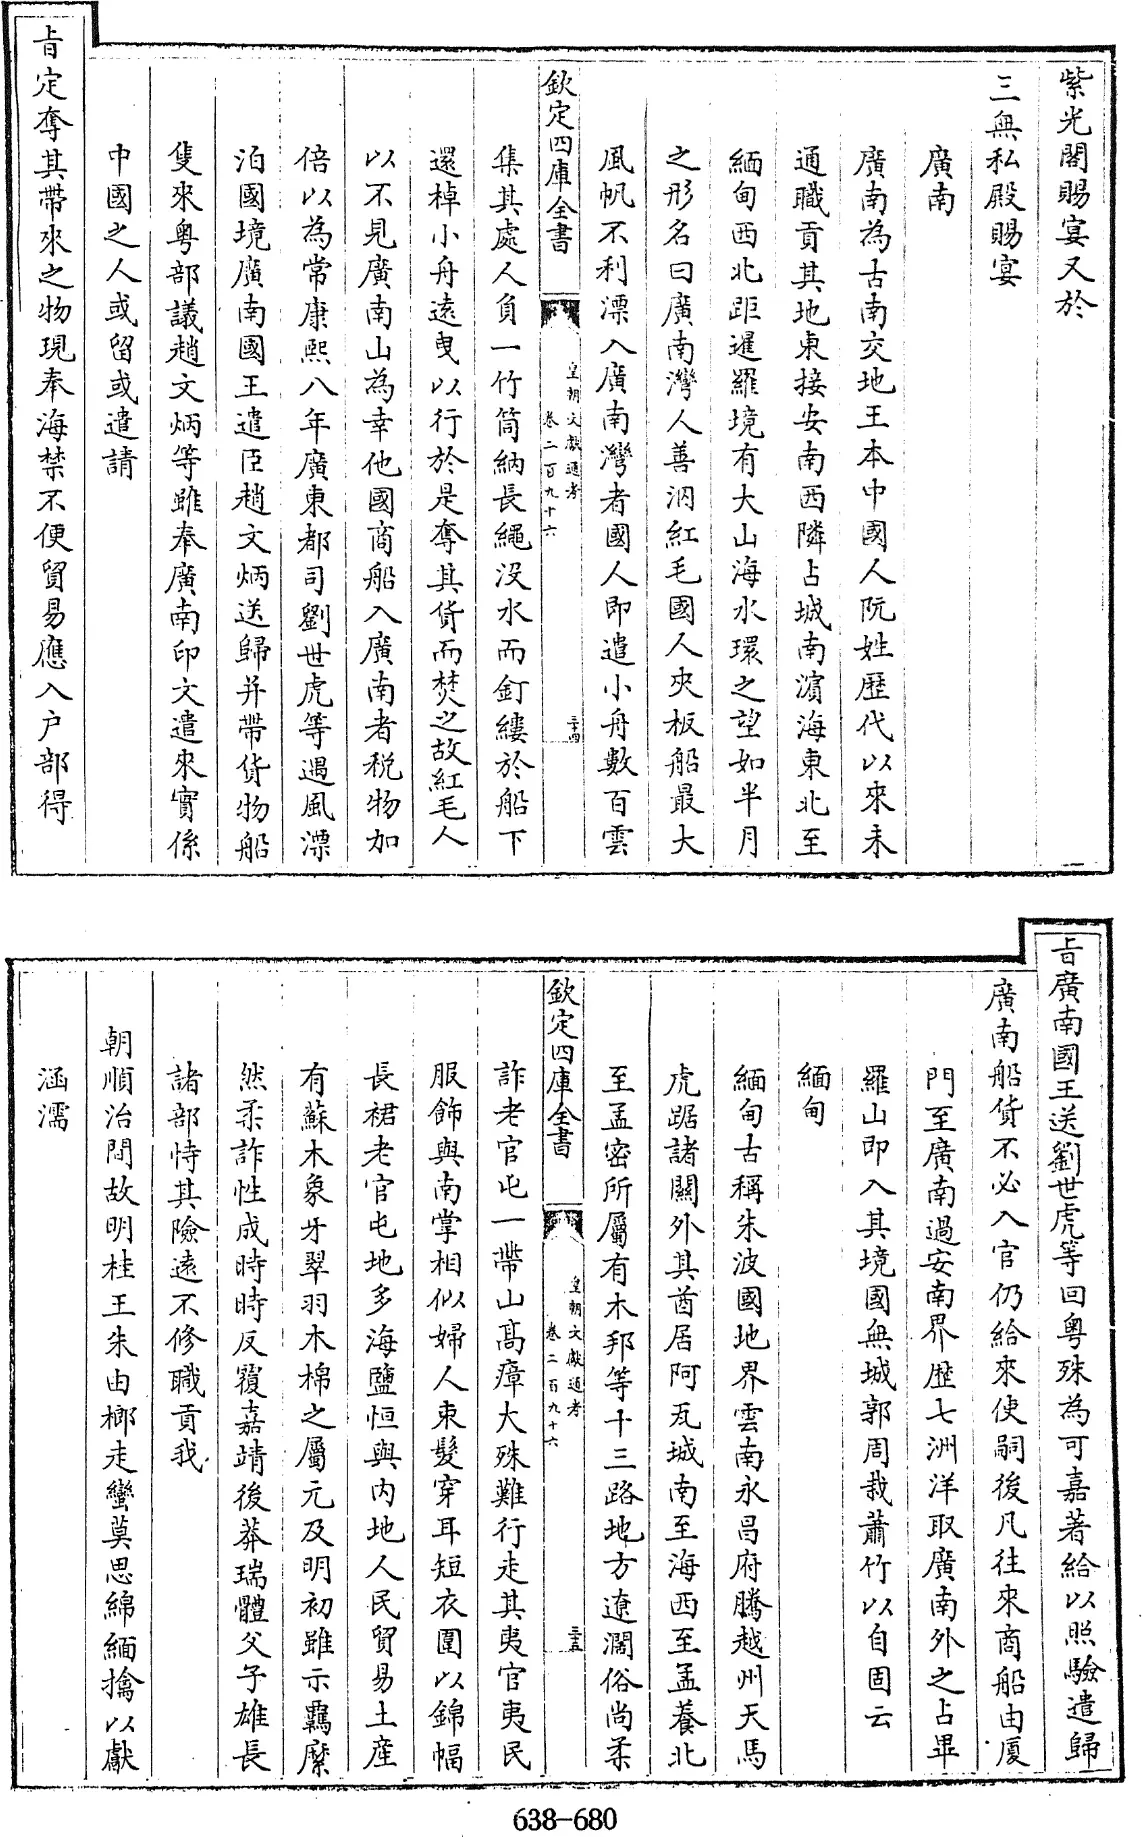 紫光閣賜宴又於
三無私殿賜宴
廣南
廣南為古南交地王本中國人阮姓歴代以來未
通職貢其地東接安南西隣占城南濵海東北至
緬甸西北距暹羅境有大山海水環之望如半月
之形名曰廣南灣人善泅紅毛國人夾板船最大
風帆不利漂入廣南灣者國人即遣小舟數百雲
欽定四庫全書
皇朝文獻通考
卷二百九十六
三十四
集其處人負一竹筒納長繩没水而釘縷於船下
還棹小舟逺曳以行於是奪其貨而焚之故紅毛人
以不見廣南山為幸他國商船入廣南者税物加
倍以為常康熙八年廣東都司劉世虎等遇風漂
泊國境廣南國王遣臣趙文炳送歸并帶貨物船
隻來粤部議趙文炳等雖奉廣南印文遣來實係
中國之人或留或遣請
㫖定奪其帶來之物現奉海禁不便貿易應入户部得
㫖廣南國王送劉世虎等回粤殊為可嘉著給以照驗遣歸
廣南船貨不必入官仍給來使嗣後凡往來商船由厦
門至廣南過安南界歴七洲洋取廣南外之占畢
羅山即入其境國無城郭周栽蕭竹以自固云
緬甸
緬甸古稱朱波國地界雲南永昌府騰越州天馬
虎踞諸關外其酋居阿瓦城南至海西至孟養北
至孟密所屬有木邦等十三路地方遼濶俗尚柔
欽定四庫全書
皇朝文獻通考
卷二百九十六
三十五
詐老官屯一帶山髙瘴大殊難行走其夷官夷民
服飾與南掌相似婦人束髮穿耳短衣圍以錦幅
長裙老官屯地多海鹽恒與内地人民貿易土産
有蘇木象牙翠羽木棉之屬元及明初雖示羈縻
然柔詐性成時時反覆嘉靖後莽瑞體父子雄長
諸部恃其險逺不修職貢我
朝順治間故明桂王朱由榔走蠻莫思綿緬擒以獻
涵濡
638-680